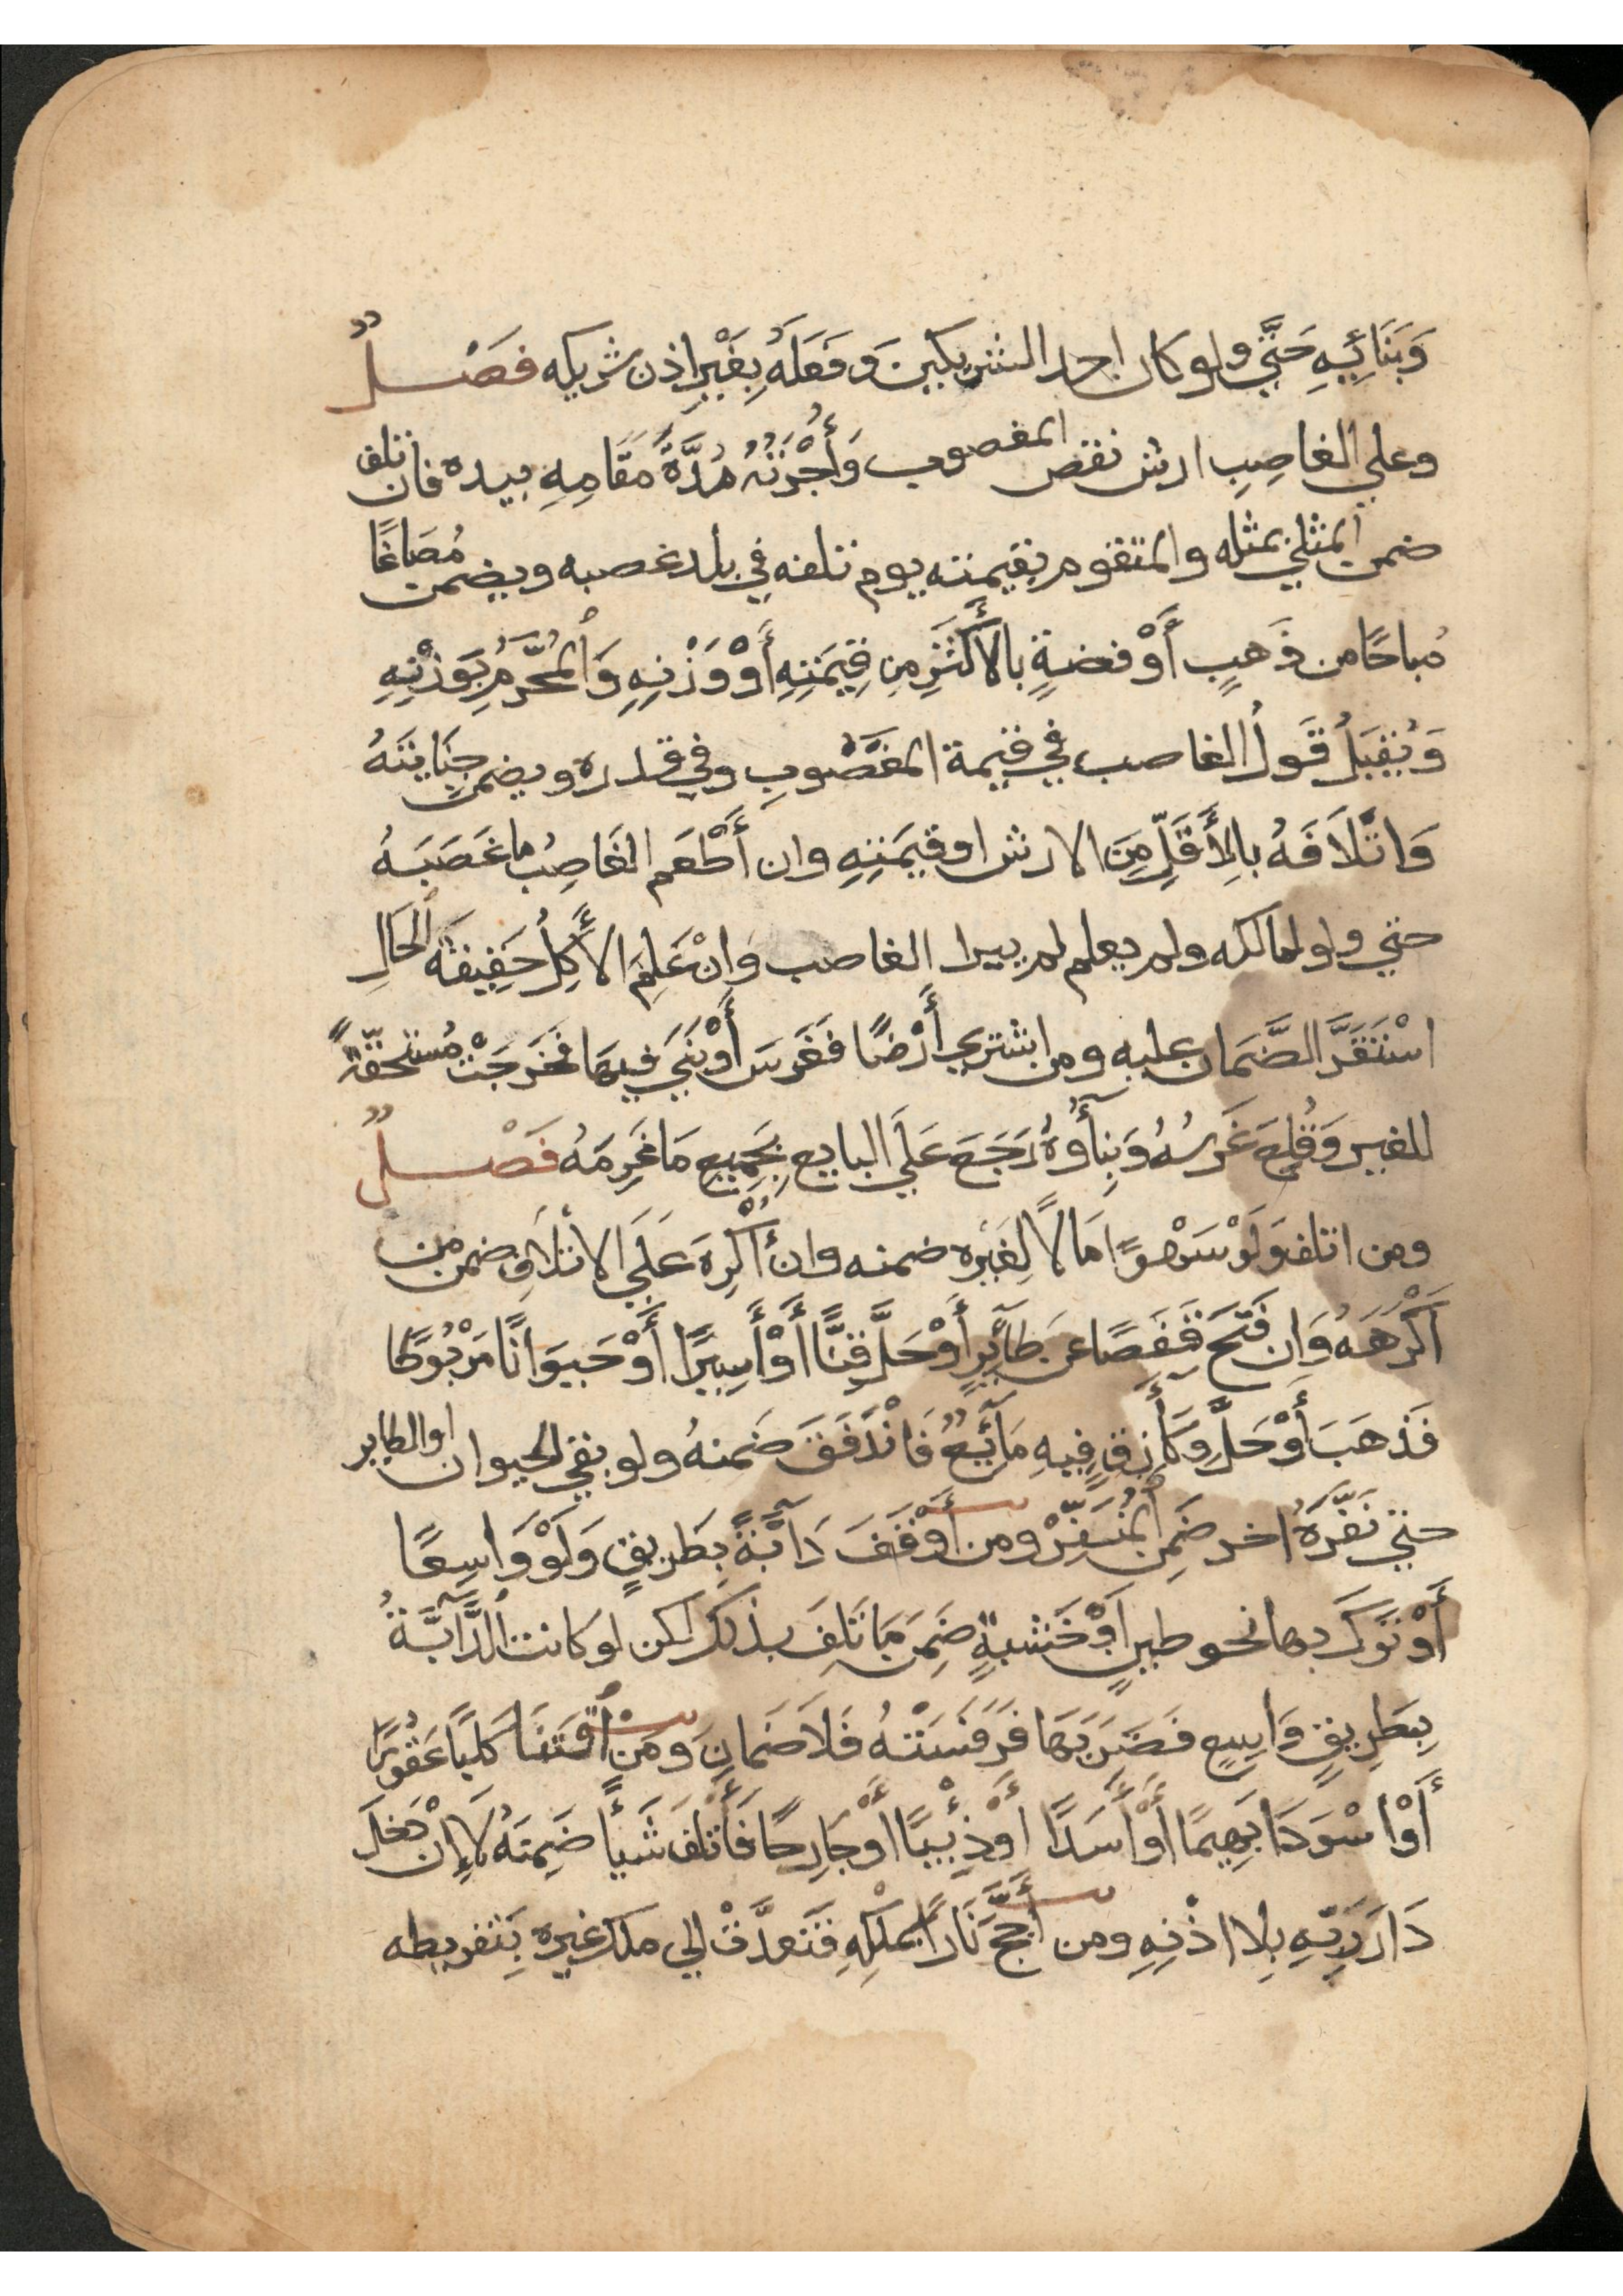 وَبَنَائِيهِ حَتَّي ولو كان احد الشريكين وَفَعَلَهُ بِغَيْرِ اذن شريكه فَصْلٌ
وعلي الغاصِبِ ارش نقص المغصوب وَأُجْرَتُهُ مُدَّةَ مَقَامِهِ بيده فان تلف
ضمن المثلي بمثله والمتقوم بقيمته يوم تلفه في بلد غصبه ويضمن مُصَاغًا
مُباحًا من ذَهبٍ أَوْ فضةٍ بالأَكْثَرِ مِن قِيمَتِهِ أَوْ وَزْنِهِ وَالمُحَّرمُ بِوَزْنِهِ
وَيُقبَلُ قَولُ الغاصب في قيمة المغَصُوبِ وفي قدره ويضمن جِنَايَتَهُ
وَاتْلَافَهُ بالِأَقَلِّ مِنَ الارش او قيمَتِهِ وان أَطْعَم الغَاصِبُ ما غَصَبَهُ
حتي ولو لمالكه ولم يعلم لم يبرا الغاصب وَاِنْ عَلِمَ الأَكِلُ حَقِيقَةَ الحَالِ
اسْتَقَرَّ الضَّمَان عليه ومن اشتري أَرْضًا فَغَرسَ أَوْ بَنَي فيهَا فخَرجَتْ مُستحقّةً
للغير وَقُلِعَ غَرسُهُ وَبِنَاؤهُ رَجَعَ عَلَي البايع بِجَمِيعِ مَا غَرِمَهُ فَصْلٌ
ومن اتلف وَلَوْ سَهْوًا مَالاً لِغَيْره ضمنه وان أُكْرِهَ عَلَي الاتْلَافِ ضمن من
اَكْرَهَهُ وَان فَتَحَ قَفَصًا عن طَآئِرٍ أَوْ حَلَّ قِنًّا أَوْ أَسِيرًا أَوْ حَيوَانًا مَرْبُوطًا
فَذهَبَ أَوْ حَلَّ وِكَآءَ زِقٍ فِيهِ مَآئِعٌ فَانْدَفَقَ ضَمنهُ ولو بقي الحيوان او الطاير
حتي نَفَّرَهُ اخر ضَمِنَ المُنَفِّرْ ومن أَوْقَفَ دَآبَّةً بِطَريقٍ وَلَوْ وَاسِعًا
أَوْ تَرَكَ بها نحو طينٍ اَوْ خَشبةٍ ضَمِنَ مَا تَلِفَ بذلك لكن لو كانت الدَّآبَّةُ
بِطَرِيقٍ وَاسِعٍ فَضَرَبَهَا فَرَفَسَتْهُ فَلَا ضَمانَ وَمَنْ اقتَنَا كلبًا عَقُورًا
أَوْ اسْوَدًا بَهِيمًا أَوْ أَسَدًا اَوْ ذِئْبًا أَوْ جَارِحًا فَأَتْلفَ شَيْأً ضَمِنَهُ لَا إِنْ دَخلَ
دَارَ رَبِّهِ بِلا اذْنِهِ ومن أَجَّجَ نَارًا بملْكِهِ فَتَعدَّتْ الي ملك غيره بِتَفريطه